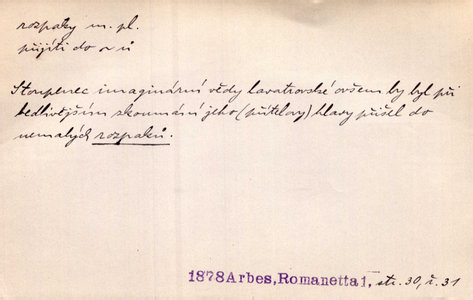 rozpaky m. pl.
přijíti do r ů
Stoupenec imaginární vědy lavatrovské ovšem by byl při
bedlivějším skoumání jeho (přítelovy) hlavy přišel do
nemalých rozpaků.
1878 Arbes, Romanetta 1, str. 30, ř. 31